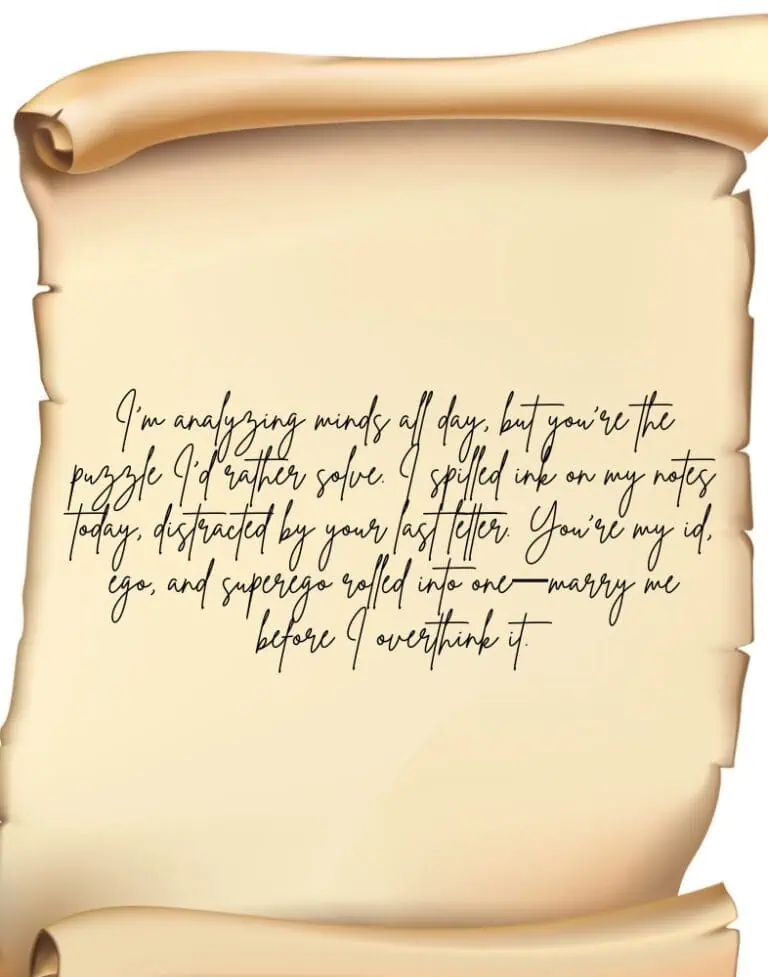 I'm analyzing minds all day, but you're the
puzzle I'd rather solve. I spilled ink on my notes
today, distracted by your last letter. You're my id,
ego, and superego rolled into one—marry me
before I overthink it.